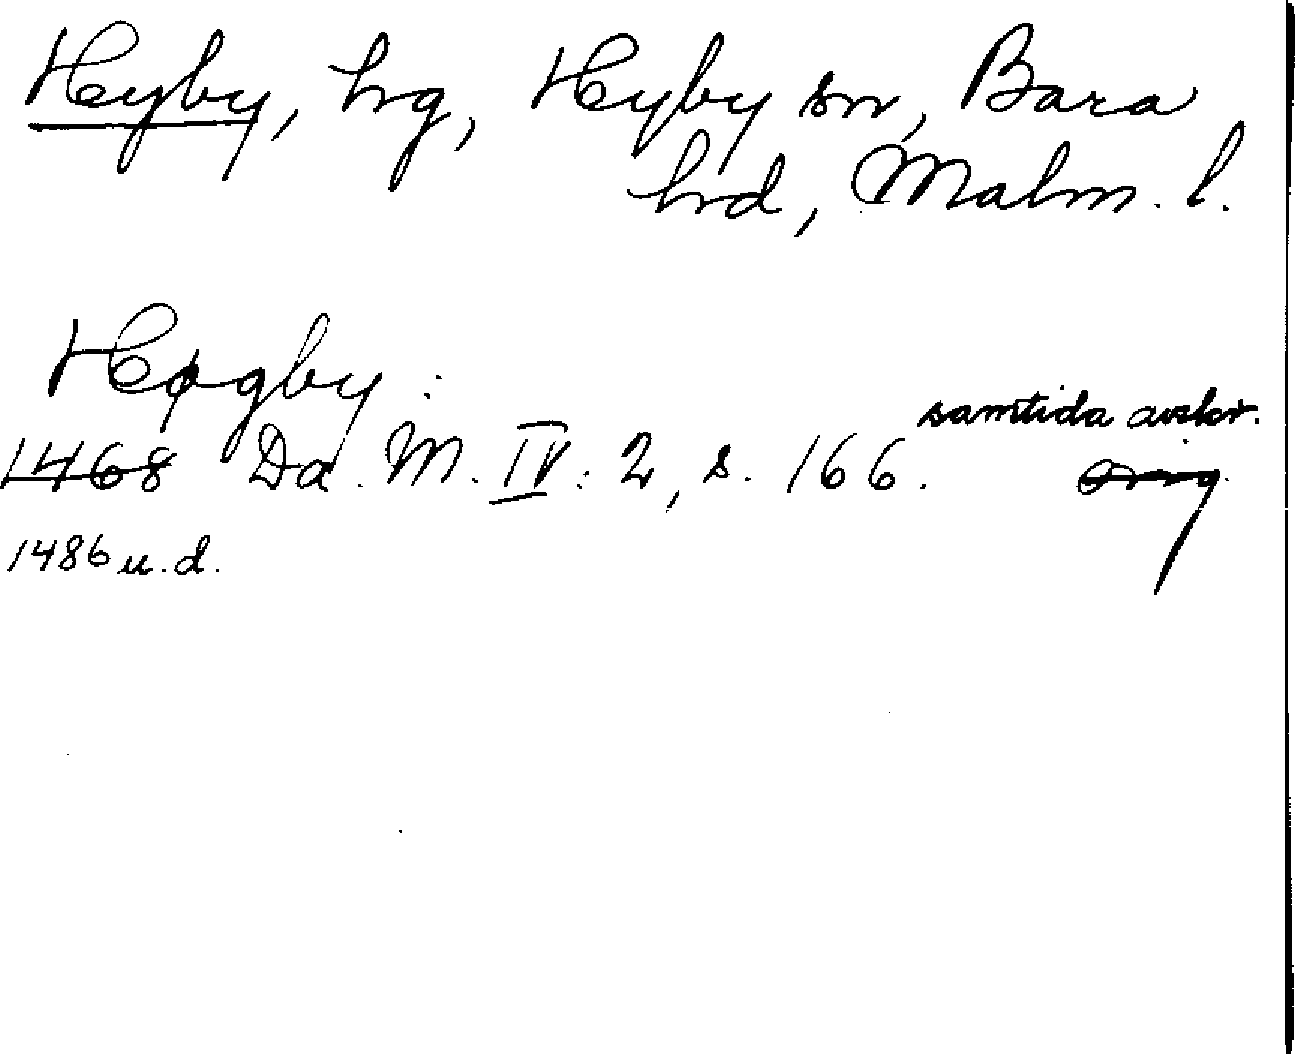 Hyby, hg, Hyby sn, Bara
hd, Malm. l.
Høgby :
samtida avskr.
1468 Da. M. IV: 2, s. 166. orig.
1486 u. d.